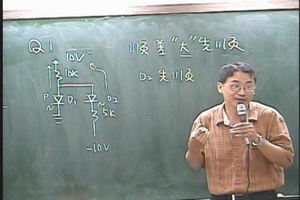 Q1
順差"大"先順
D2 先順
10V
10K
P
D1
D2
5K
-10V